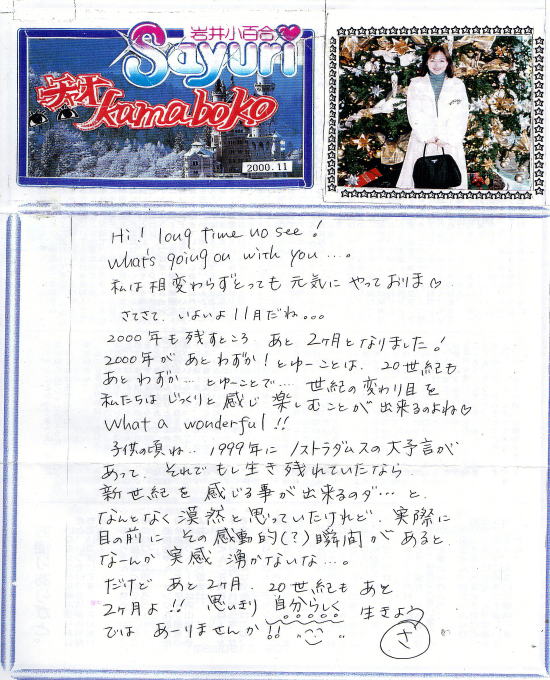 岩井小百合
Sayuri
kamaboko
2000.11
Hi! long time no see!
What's going on with you....。
私は相変わらずとっても 元気に やっておりま♡
さてさて、いよいよ 11月だね。。。
2000年も残すところ あと 2ヶ月となりました!
2000年が あとわずか! とゆーことは、20世紀も
あと わずか… とゆーことで…. 世紀の変わり目を
私たちは じっくりと 感じ 楽しむことが 出来るのよね♡
What a wonderful!!
子供の頃ね.. 1999年に ノストラダムスの大予言が
あって、それでもし生き残れていたなら、
新世紀を 感じる事が出来るのダ… と、
なんとなく 漠然と 思っていたけれど、実際に
目の前に その感動的(?)瞬間が あると、
なーんか 実感 湧かないな…。
だけど あと2ヶ月、20世紀も あと
2ヶ月よ!! 思いきり 自分らしく 生きよう
では あーりませんか!!
さ